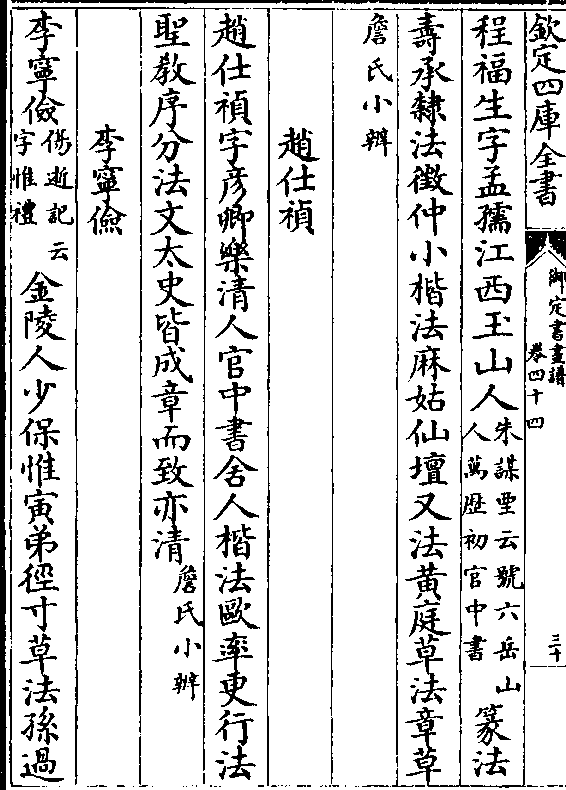 欽定四庫全書
御定書畫譜
卷四十四
三十
程福生字孟孺江西玉山人朱謀垔云號六岳山人萬歷初官中書篆法
壽承隸法徵仲小楷法麻姑仙壇又法黃庭草法章草
詹氏小辨
趙仕禎
趙仕禎字彥卿樂清人官中書舍人楷法歐率更行法
聖教序分法文太史皆成章而致亦清詹氏小辨
李寧儉
李寧儉傷逝記云字惟禮金陵人少保惟寅弟徑寸草法孫過